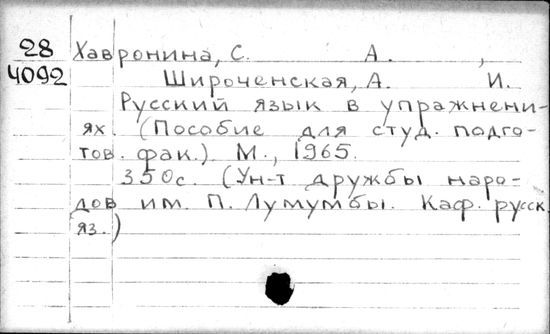 28 Хавронина, С. А. ,
4092 Широченская, А. И.
Русский язык в упражнени-
ях. (Пособие для студ. подго-
тов. фак.) М., 1965.
350с. (Ун-т дружбы наро-
дов им. П. Лумумбы. Каф. русск.
яз.)